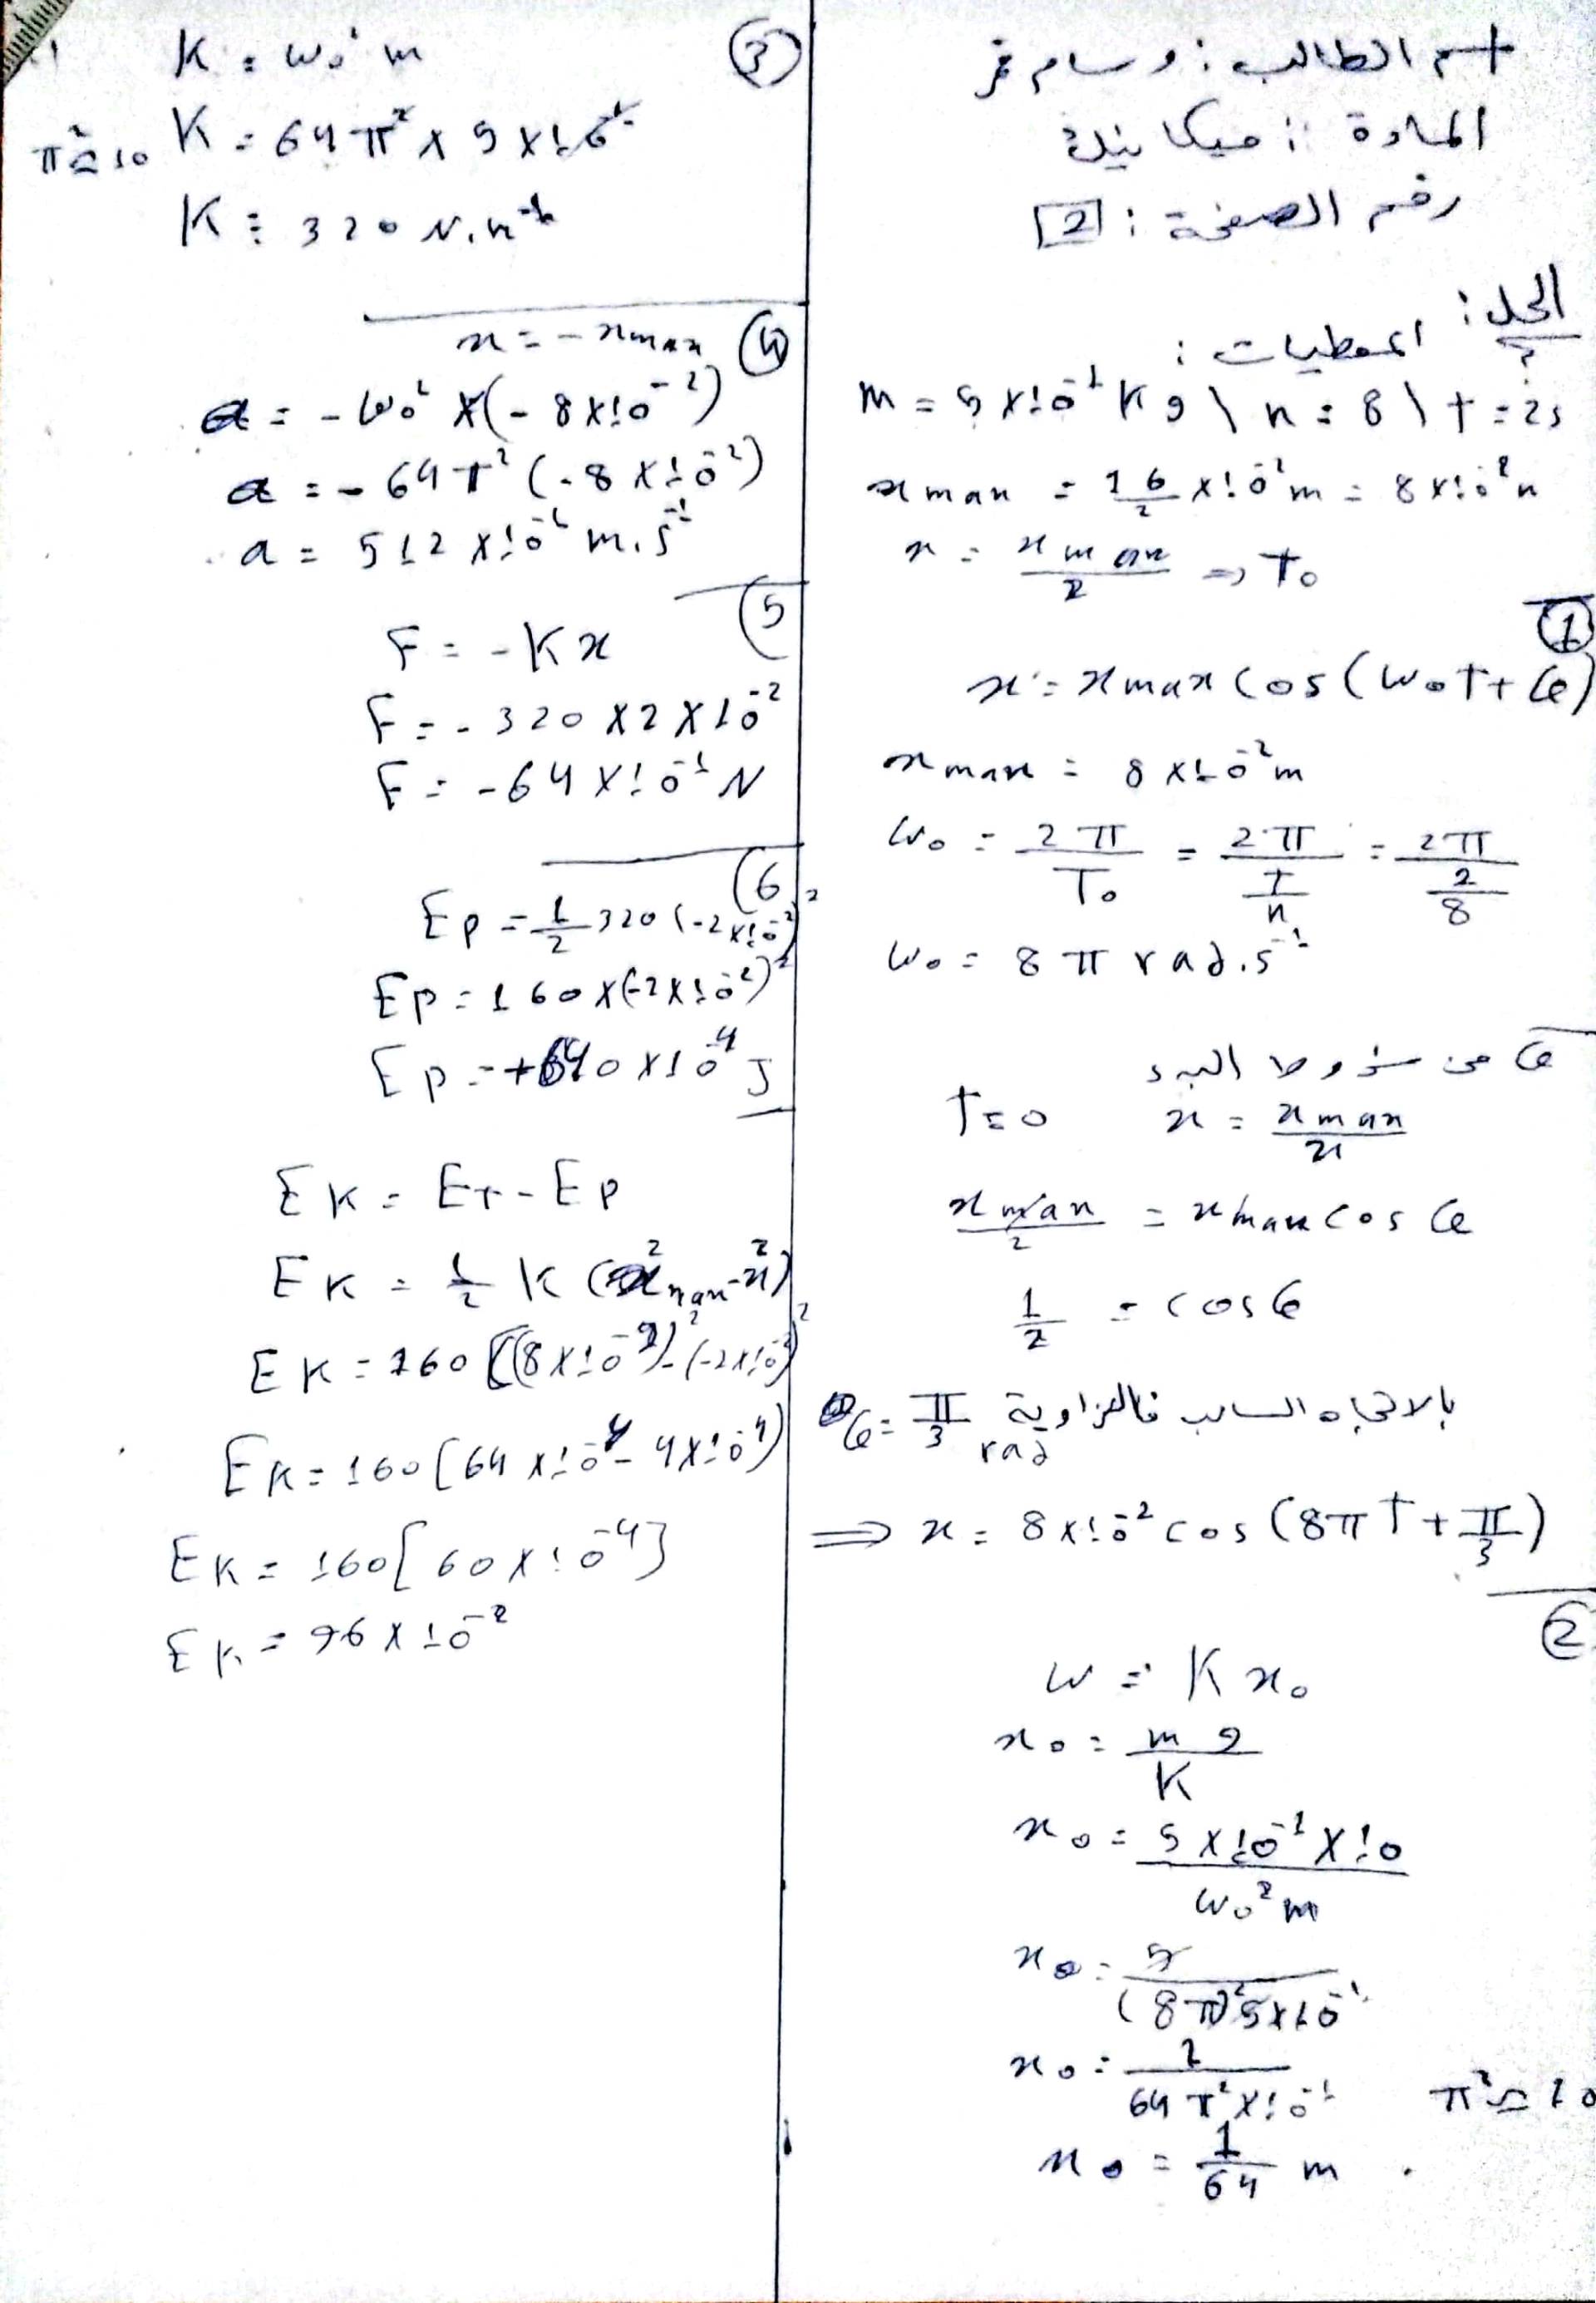 اسم الطالب : وسام قر
المادة : ميكانيك
رقم الصفحة : 2
الحل :
المعطيات :
m = 5 x 10⁻¹ Kg \ n = 8 \ t = 2s
x max = 16/2 x 10⁻² m = 8 x 10⁻² m
x = x max / 2 => To
①
x = x max cos (ωo t + φ)
x max = 8 x 10⁻² m
ωo = 2π / To = 2π / (t/n) = 2π / (2/8)
ωo = 8 π rad.s⁻¹
φ من شروط البدء
t = 0 x = x max / 2
x max / 2 = x max cos φ
1/2 = cos φ
بالاتجاه السالب فالزاوية φ = π/3 rad
=> x = 8 x 10⁻² cos (8π t + π/3)
②
w = K xo
xo = m g / K
xo = 5 x 10⁻¹ x 10 / ωo² m
xo = 5 / (8π)² 5 x 10⁻¹
xo = 1 / 64 π² x 10⁻¹ π² ≃ 10
xo = 1/64 m
③
K = ωo² m
π² ≃ 10 K = 64 π² x 5 x 10⁻¹
K = 320 N.m⁻¹
④
x = - x max
a = - ωo² x (- 8 x 10⁻²)
a = - 64 π² (-8 x 10⁻²)
a = 512 x 10⁻¹ m.s⁻²
⑤
F = - K x
F = - 320 x 2 x 10⁻²
F = - 64 x 10⁻¹ N
⑥
Ep = 1/2 320 (-2 x 10⁻²)²
Ep = 160 x (-2 x 10⁻²)²
Ep = + 640 x 10⁻⁴ J
EK = ET - Ep
EK = 1/2 K (x² max - x²)
EK = 160 [(8 x 10⁻²)² - (-2 x 10⁻²)²
EK = 160 [64 x 10⁻⁴ - 4 x 10⁻⁴)
EK = 160 [60 x 10⁻⁴]
EK = 96 x 10⁻²